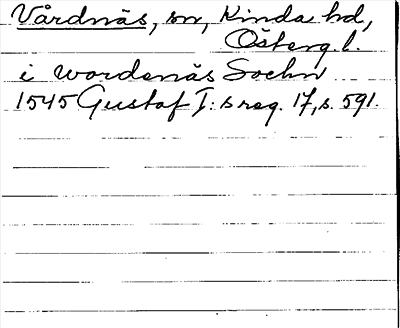 Vårdnäs, sn, Kinda hd,
Österg. l.
i wordenäs Sochn
1545 Gustaf I:s reg. 17, s. 591.